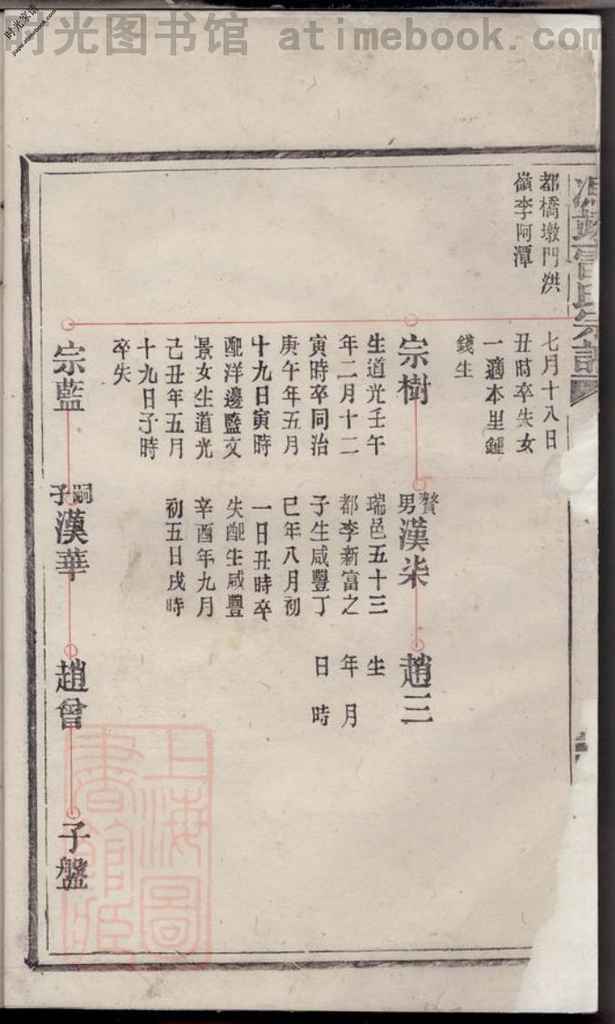 时光图书馆 atimebook.com
都橋墩門洪
嶺李阿潭
七月十八日
丑時卒失女
一適本里鍾
錢生
宗樹
生道光壬午
年二月十二
寅時卒同治
庚午年五月
十九日寅時
配洋邊藍文
景女生道光
己丑年五月
十九日子時
卒失
贅男漢柒
瑞邑五十三
都李新富之
子生咸豐丁
己年八月初
一日丑時卒
失配生咸豐
辛酉年九月
初五日戌時
趙三
生
年月
日時
宗藍
嗣子漢華
趙曾
子盤
上海圖
書館